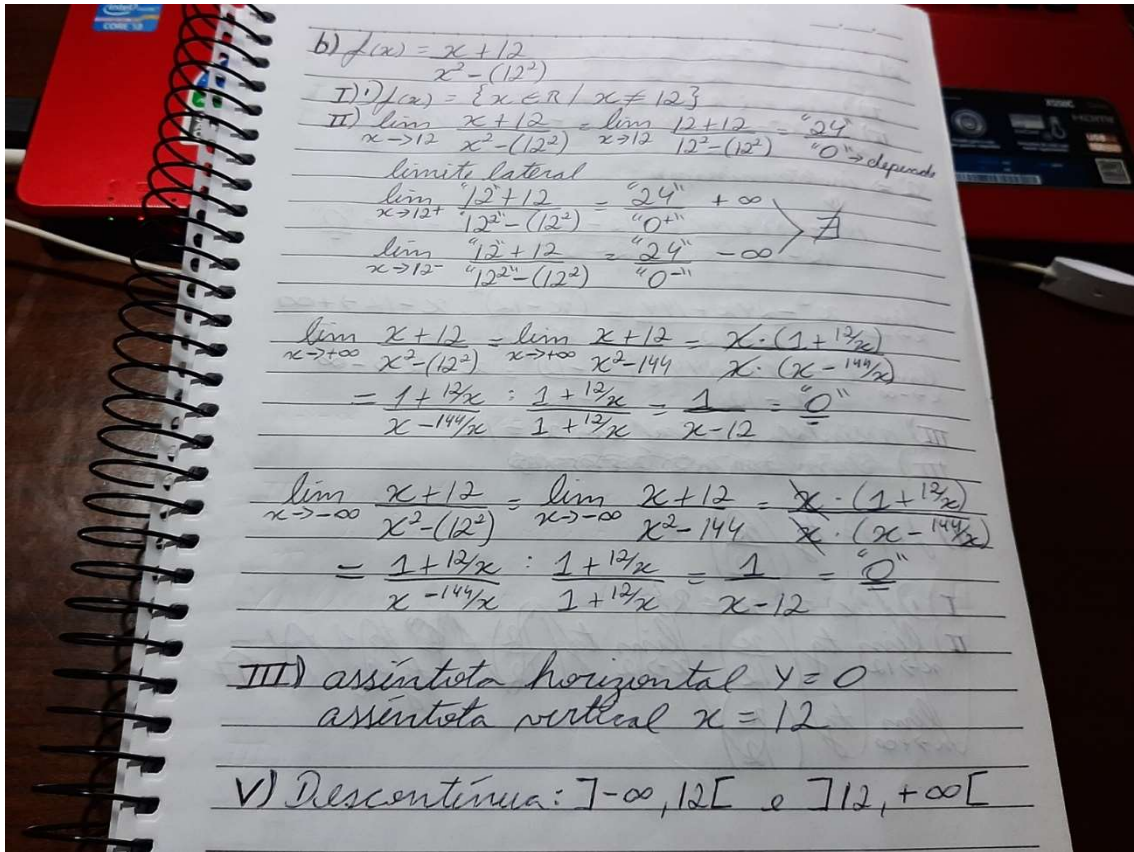 b) f(x) = x + 12 / x² - (12²)
I) Df(x) = {x ∈ R / x ≠ 12}
II) lim x→12 x + 12 / x² - (12²) = lim x→12 12 + 12 / 12² - (12²) = "24" / "0" → depende
limite lateral
lim x→12+ "12" + 12 / "12²" - (12²) = "24" / "0+" + ∞
∄
lim x→12- "12" + 12 / "12²" - (12²) = "24" / "0-" - ∞
lim x→+∞ x + 12 / x² - (12²) = lim x→+∞ x + 12 / x² - 144 = x · (1 + 12/x) / x · (x - 144/x)
= 1 + 12/x / x - 144/x : 1 + 12/x / 1 + 12/x = 1 / x - 12 = "0"
lim x→-∞ x + 12 / x² - (12²) = lim x→-∞ x + 12 / x² - 144 = x · (1 + 12/x) / x · (x - 144/x)
= 1 + 12/x / x - 144/x : 1 + 12/x / 1 + 12/x = 1 / x - 12 = "0"
III) assíntota horizontal y = 0
assíntota vertical x = 12
V) Descontínua: ]-∞, 12[ e ]12, +∞[